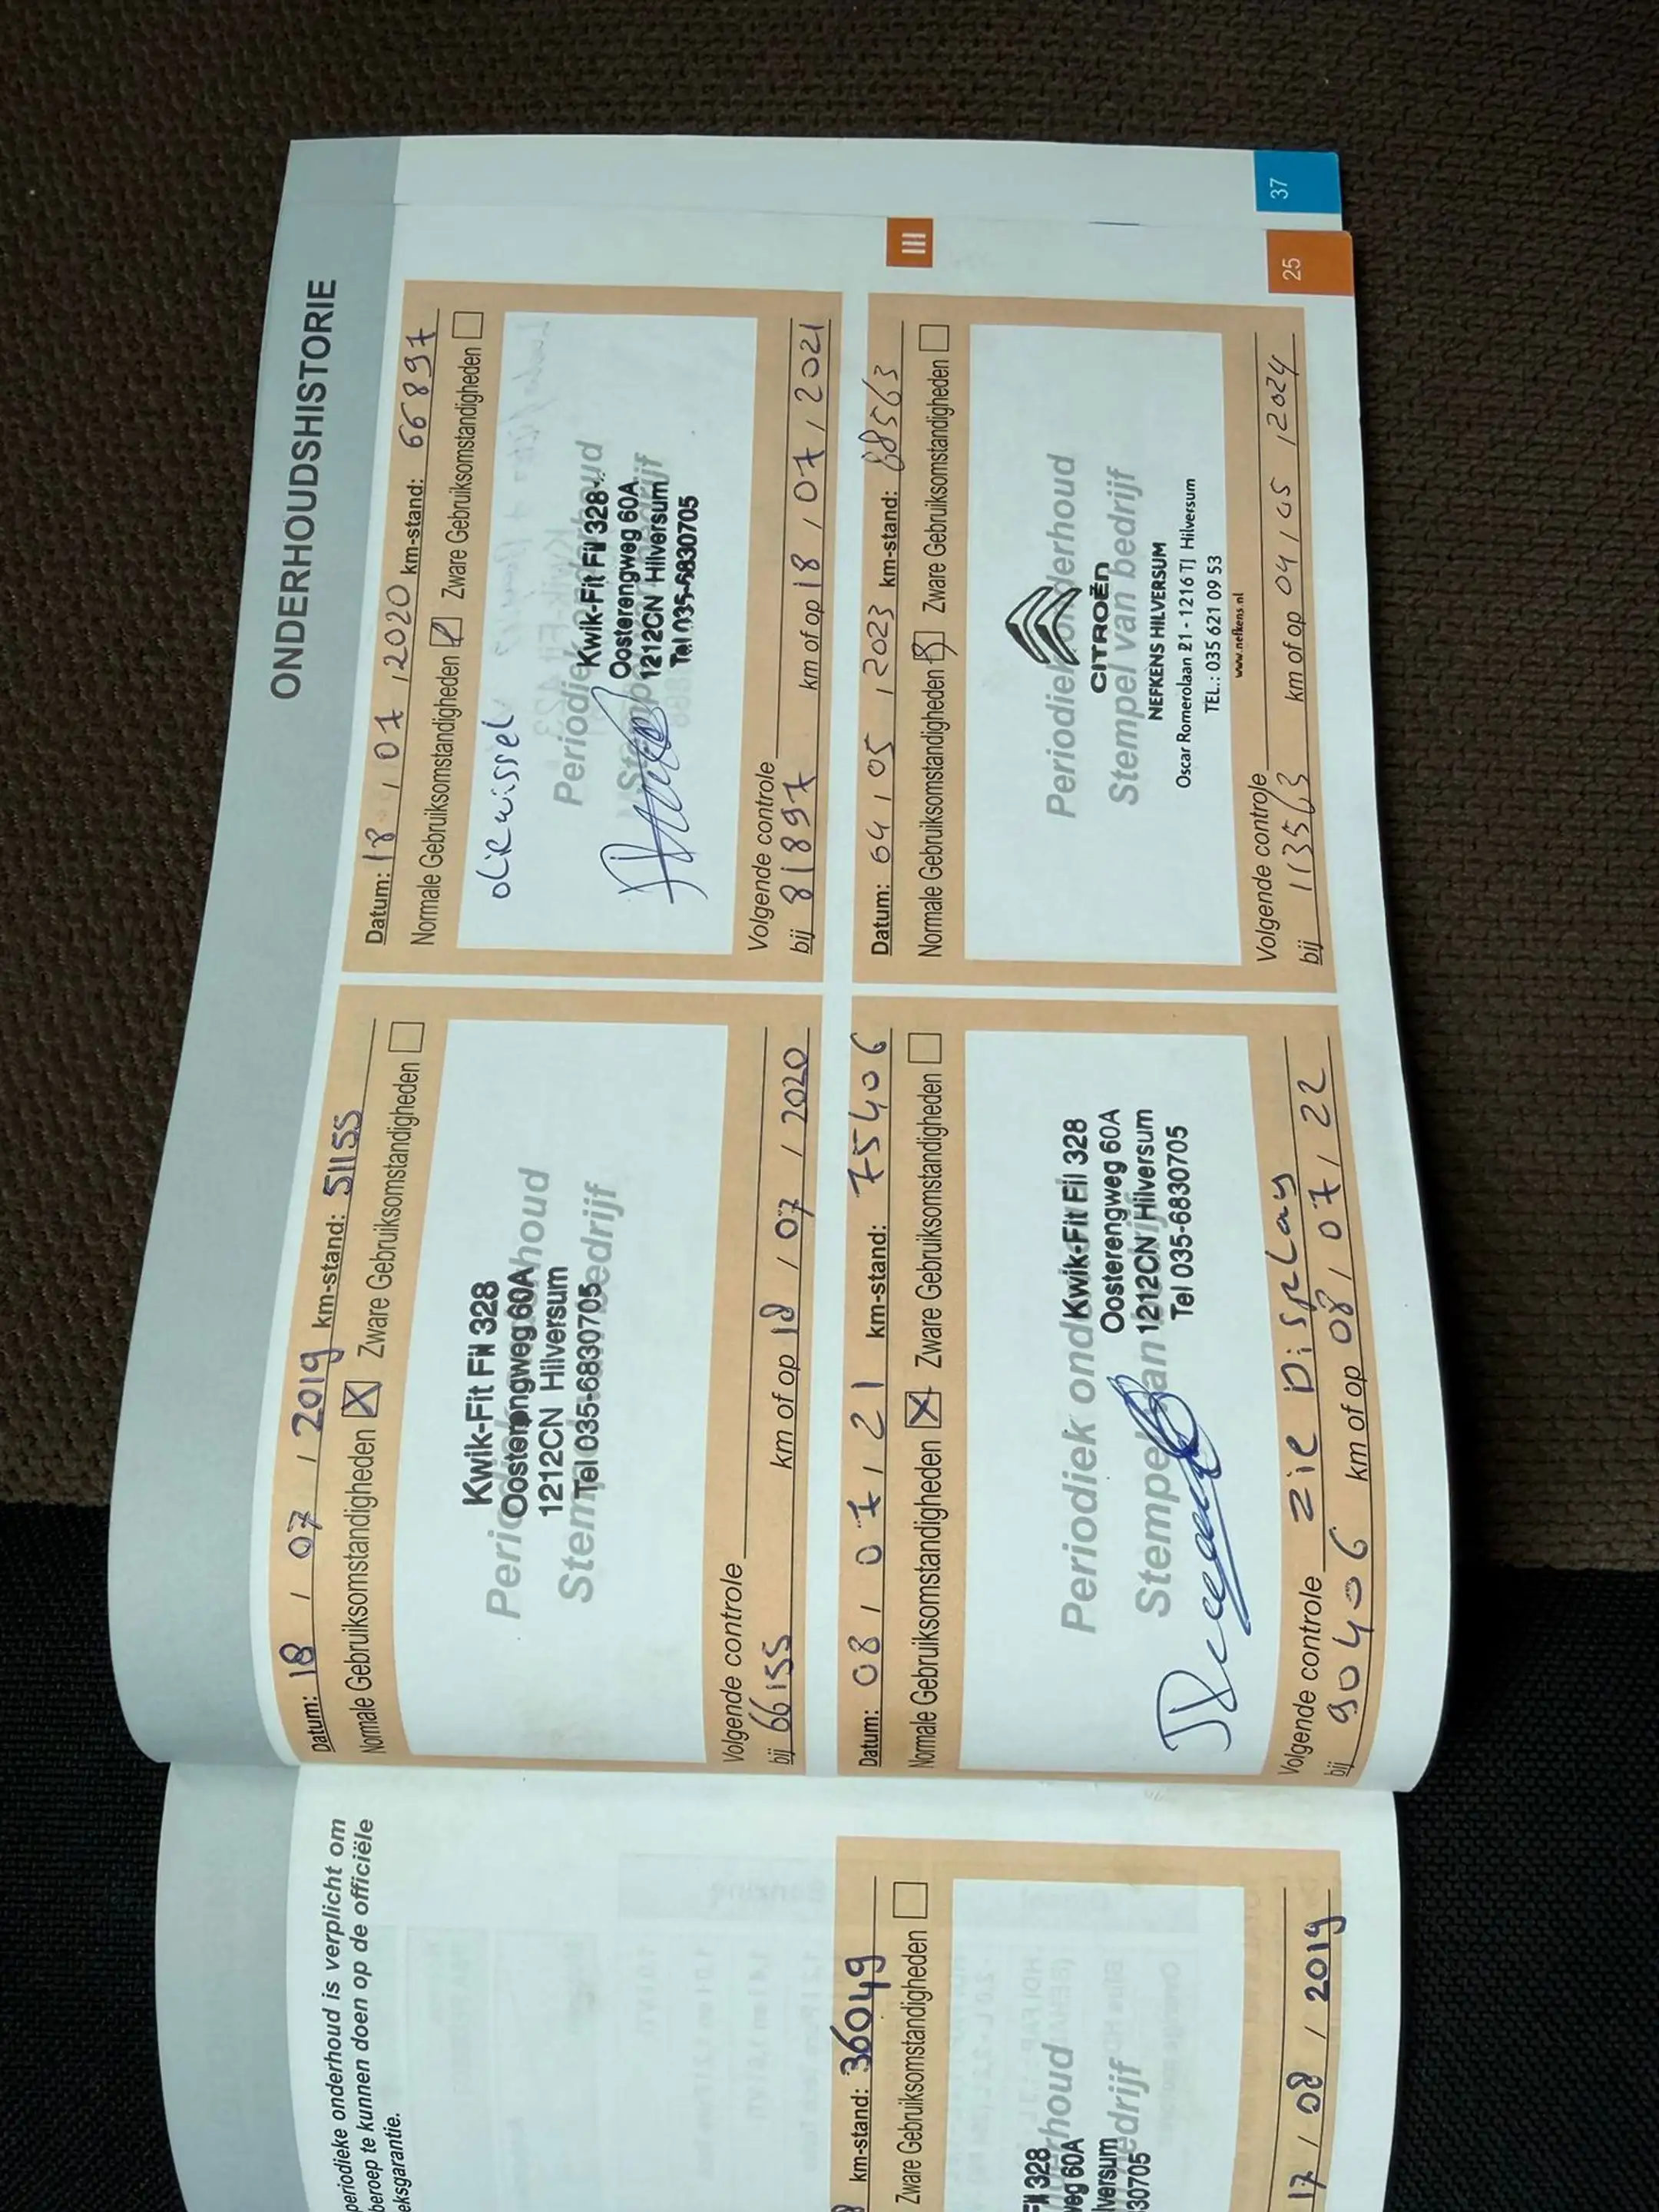 periodieke onderhoud is verplicht om
beroep te kunnen doen op de officiële
eksgarantie.
km-stand: 36049
Zware Gebruiksomstandigheden
erhoud
edrijf
Fil 328
weg 60A
versum
30705
17 / 08 / 2019
ONDERHOUDSHISTORIE
Datum: 18 / 07 / 2019 km-stand: 51155
Normale Gebruiksomstandigheden X Zware Gebruiksomstandigheden
Kwik-Fit Fil 328
Oosterengweg 60A
1212CN Hilversum
Tel 035-6830705
Volgende controle
bij 66155 km of op 18 / 07 / 2020
Datum: 18 / 07 / 2020 km-stand: 66897
Normale Gebruiksomstandigheden Zware Gebruiksomstandigheden
oliewissel
Periodiek onderhoud
Stempel van bedrijf
Kwik-Fit Fil 328
Oosterengweg 60A
1212CN Hilversum
Tel 035-6830705
Volgende controle
bij 81897 km of op 18 / 07 / 2021
Datum: 08 / 07 / 21 km-stand: 75406
Normale Gebruiksomstandigheden X Zware Gebruiksomstandigheden
Periodiek onderhoud
Stempel van bedrijf
Kwik-Fit Fil 328
Oosterengweg 60A
1212CN Hilversum
Tel 035-6830705
Volgende controle zie Display
bij 90406 km of op 08 / 07 / 22
Datum: 04 / 05 / 2023 km-stand: 88563
Normale Gebruiksomstandigheden Zware Gebruiksomstandigheden
Periodiek onderhoud
Stempel van bedrijf
CITROËN
NEFKENS HILVERSUM
Oscar Romerolaan 21 - 1216 TJ Hilversum
TEL.: 035 621 09 53
www.nefkens.nl
Volgende controle
bij 113563 km of op 04 / 05 / 2024
III
25
37